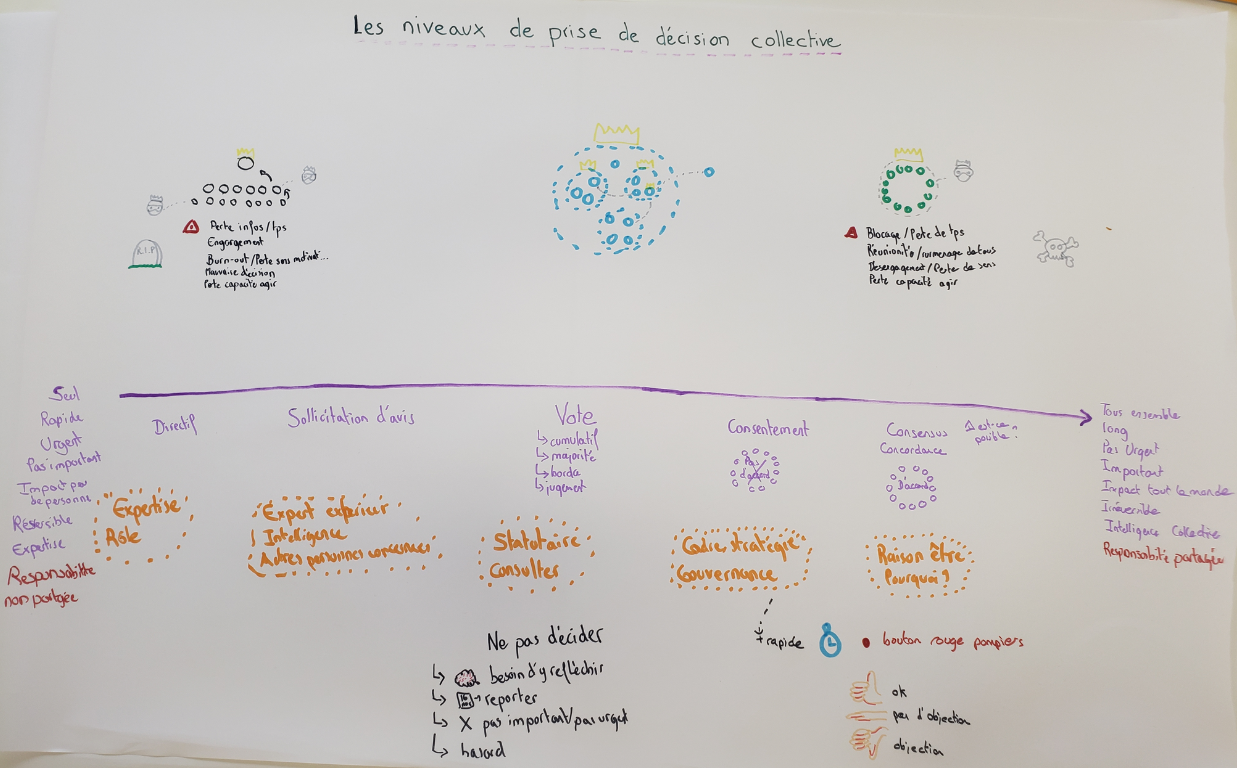 Les niveaux de prise de décision collective
R.I.P
Perte infos/tps
Engorgement
Burn-out/Perte sens motivat...
Mauvaise décision
Perte capacité agir
Blocage/Perte de tps
Réunionite/surmenage de tous
Desengagement/Perte de sens
Perte capacité agir
Seul
Rapide
Urgent
Pas important
Impact peu
de personne
Réversible
Expertise
Responsabilité
non partagée
Directif
"Expertise
Rôle
Sollicitation d'avis
Expert extérieur
Intelligence
Autres personnes concernées
Vote
↳ cumulatif
↳ majorité
↳ borda
↳ jugement
Statutaire
Consulter
Consentement
Pas
d'accord
Cadre stratégie
Gouvernance
Consensus
Concordance
est-ce
posible?
D'accord
Raison être
Pourquoi?
Tous ensemble
long
Pas Urgent
Important
Impact tout le monde
Irréversible
Intelligence Collective
Responsabilité partagée
Ne pas décider
↳ besoin d'y refléchir
↳ reporter
↳ X pas important/pas urgent
↳ hasard
+ rapide
bouton rouge pompiers
ok
pas d'objection
objection